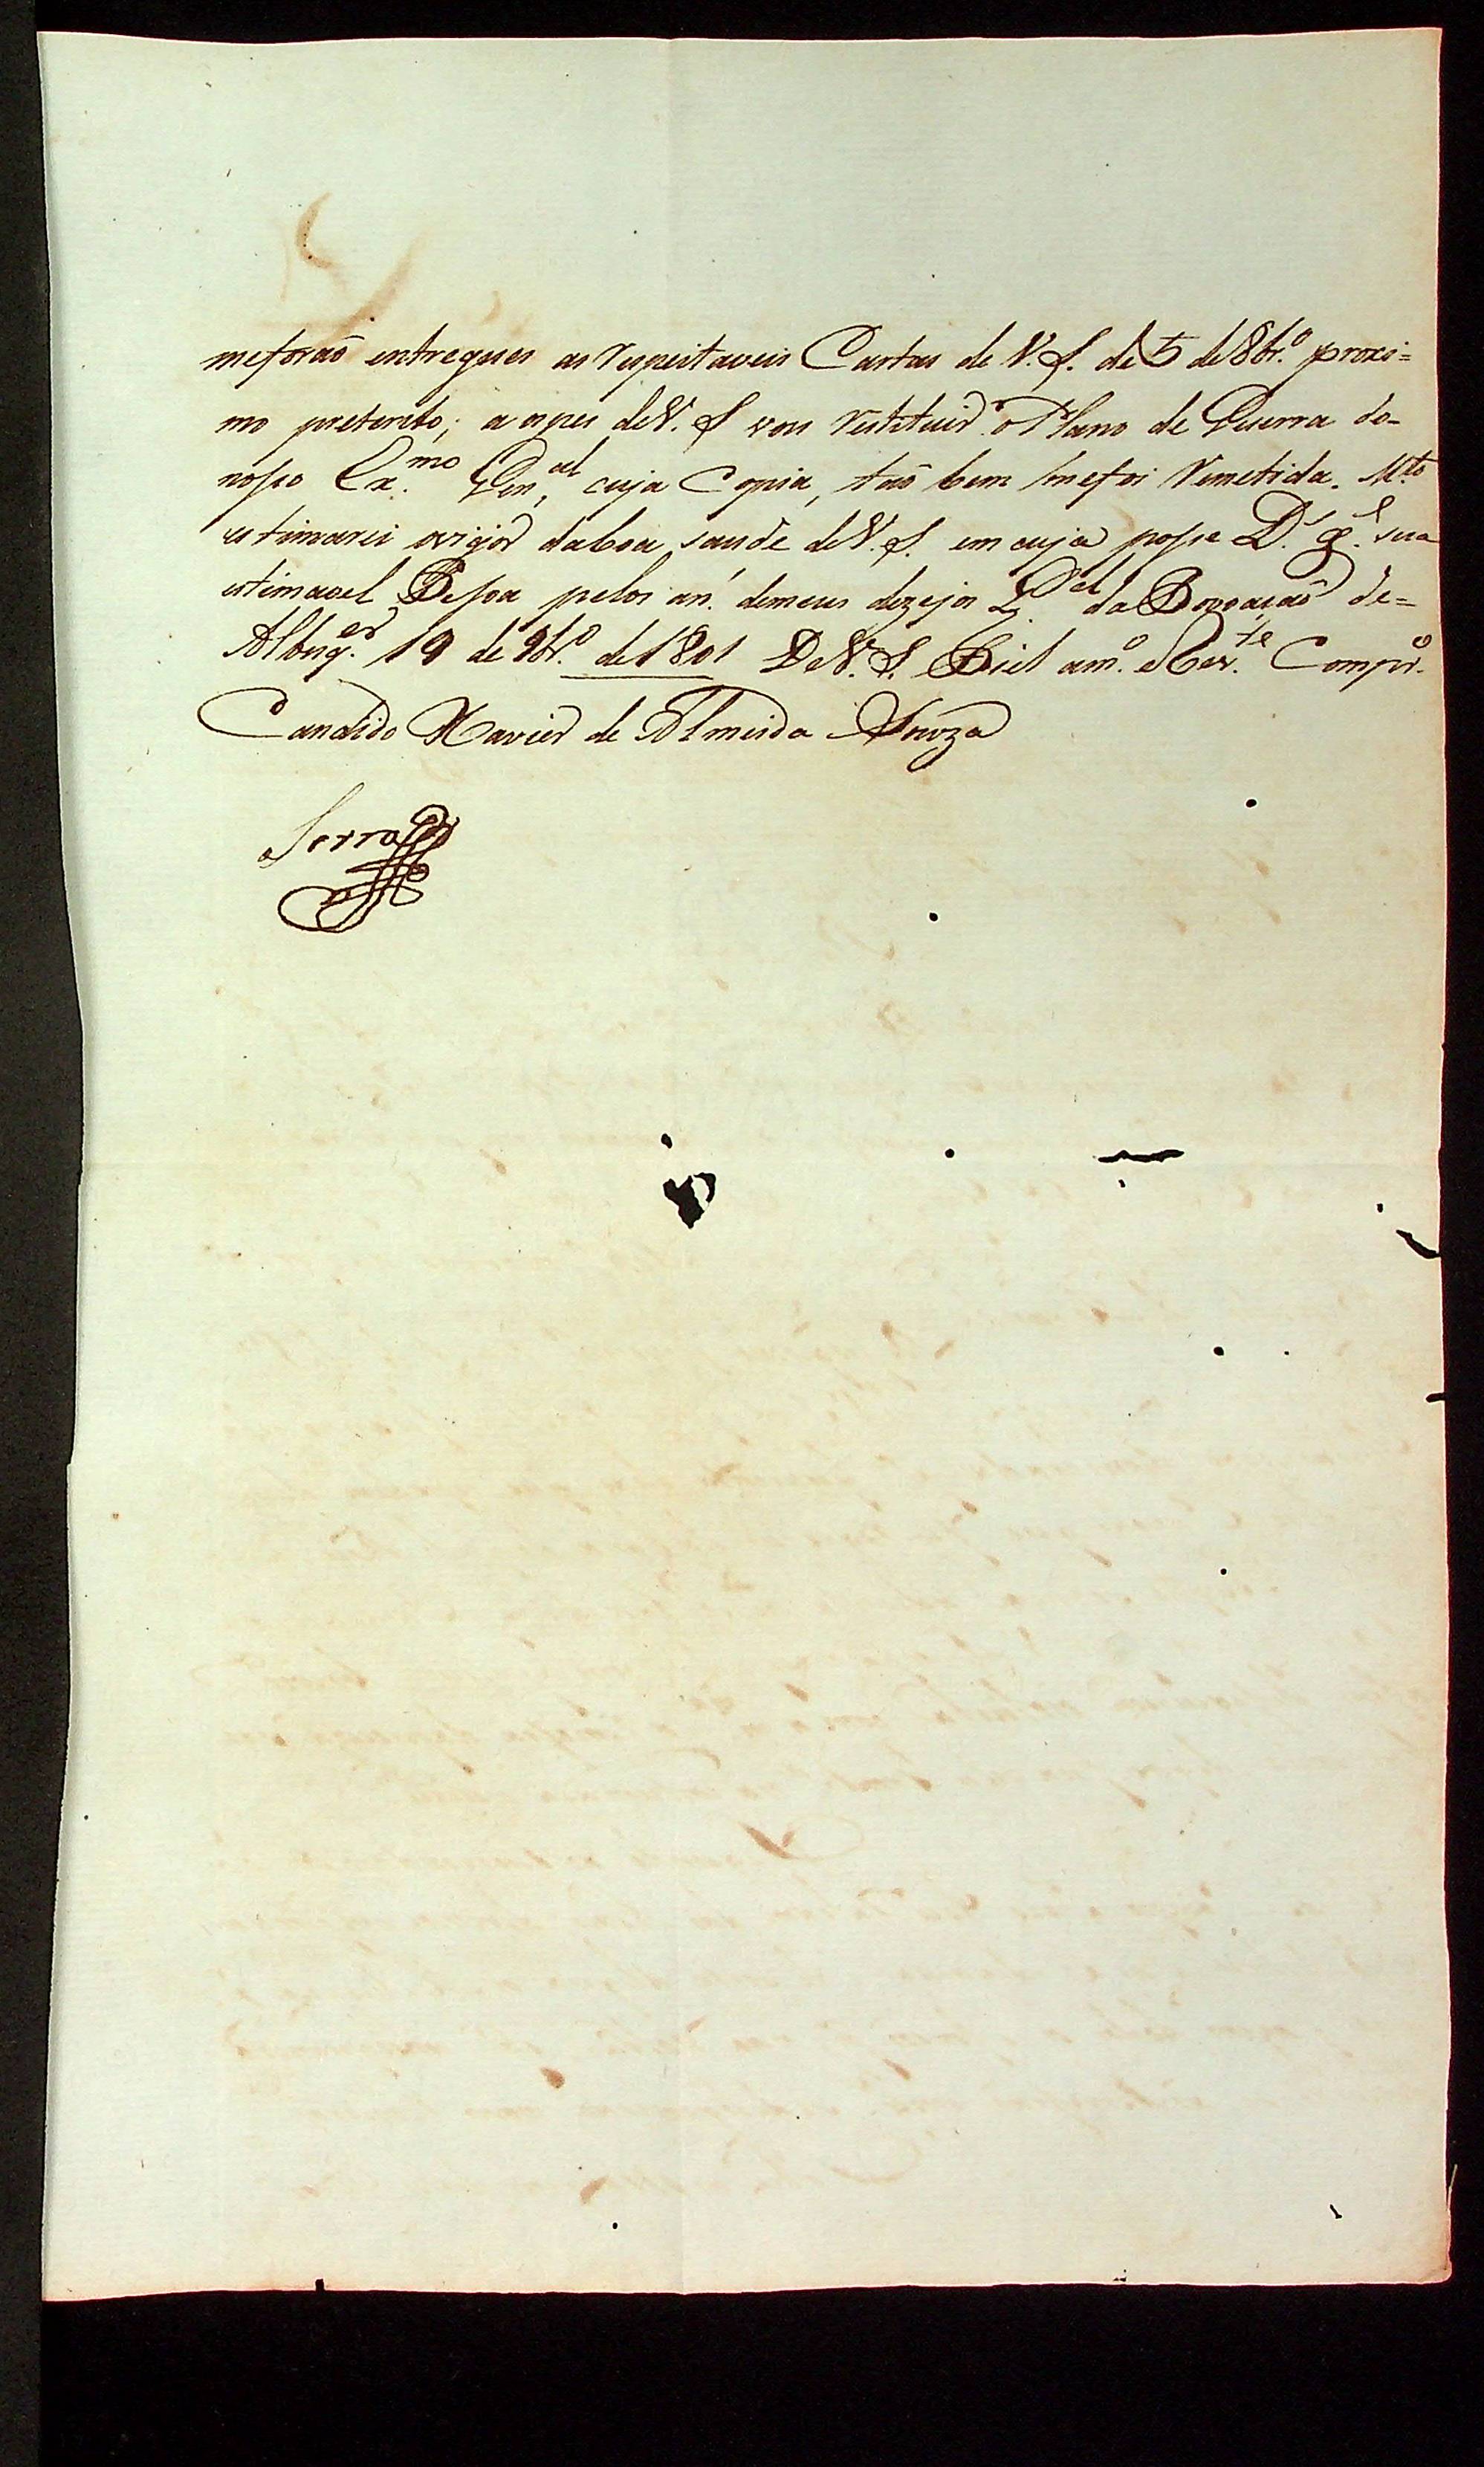 meforaõ entregues as respeitaveis Cartas de V. S. de 5 de 8br.º proxi=
mo preterito; a os pes de V. S vou restituir o Plano de Guerra do-
nosso Ex.mo Gen.al, cuja Copia, taõ bem me foi Remetida. M.to
estimarei o vigor daboa saude de V. S. em cuja posse D.s g.e sua
estimavel Pesoa pelos an.s demeus dezejos Q.el da Povoaçaõ de=
Albuq.er 19 de 9br.º de 1801 De V. S. Fiel am.º e Rev.te Comp.ro
Candido Xavier de Almeida Souza
Serra